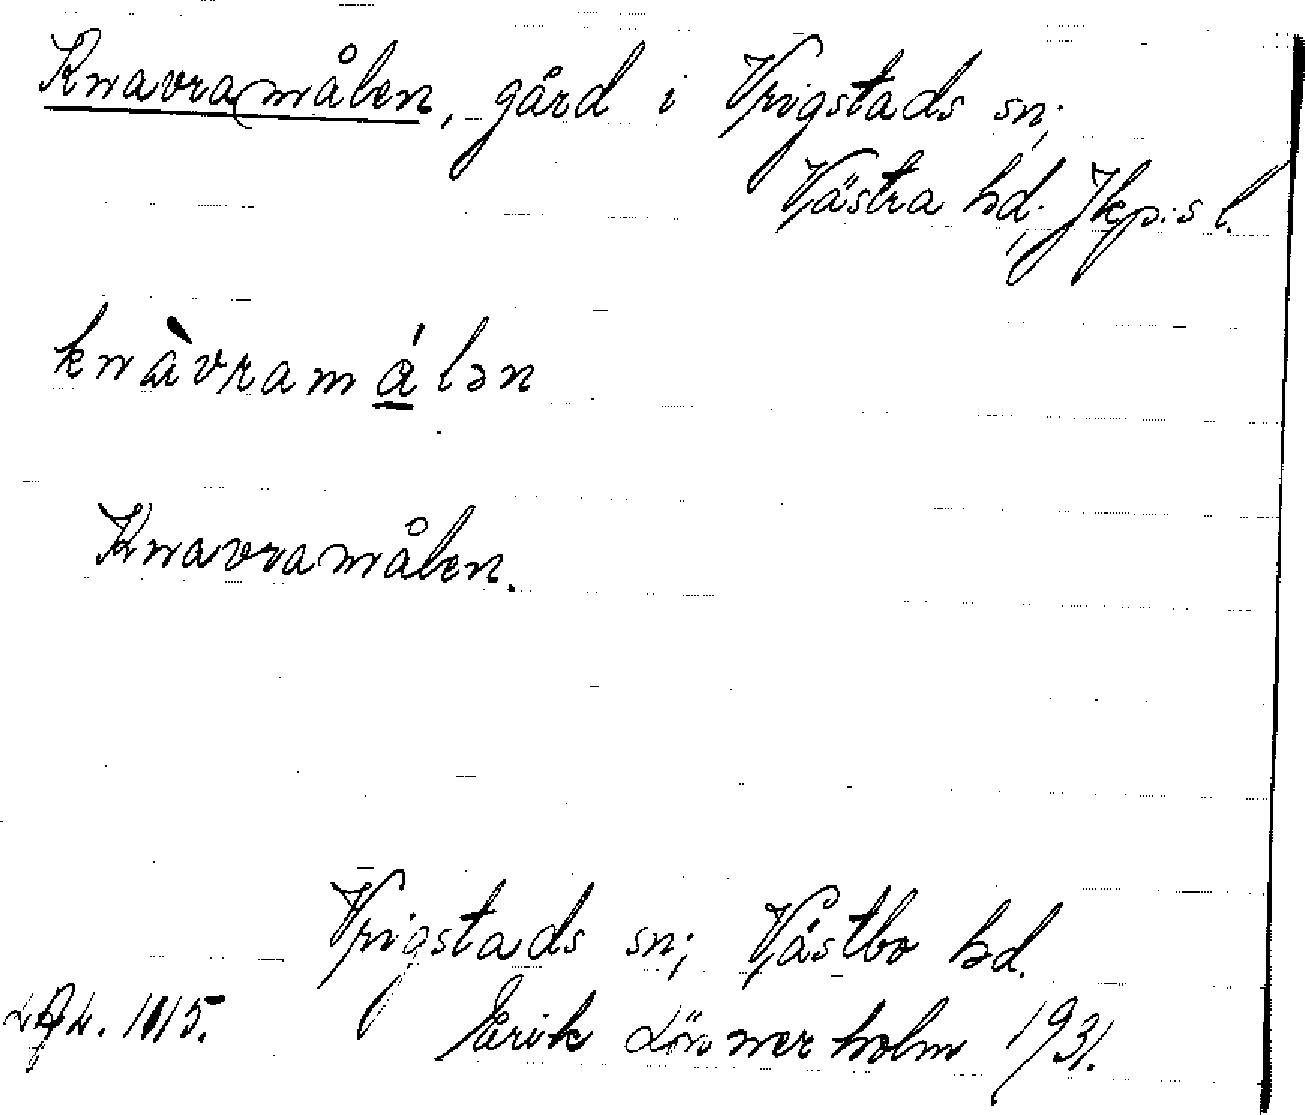 Knavramålen, gård i Vrigstads sn;
Västra hd; Jkp:s l.
knàvramálən
Knavramålen.
Vrigstads sn; Västbo hd.
Erik Lönnerholm 1931.